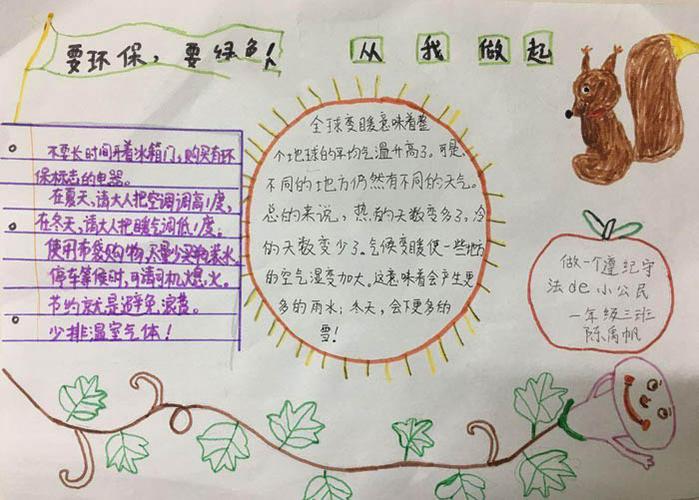 要环保，要绿色！
从我做起
不要长时间开着冰箱门，购买有环
保标志的电器。
在夏天，请大人把空调调高1度，
在冬天，请大人把暖气调低1度。
使用布袋购物，尽量少买瓶装水，
停车等候时，可请司机熄火。
节约就是避免浪费。
少排温室气体！
全球变暖意味着整
个地球的平均气温升高了。可是，
不同的地方仍然有不同的天气。
总的来说，热的天数变多了，冷
的天数变少了。气候变暖使一些地方
的空气湿变加大。这意味着会产生更
多的雨水；冬天，会下更多的
雪！
做一个遵纪守
法de小公民
一年级三班
陈禹帆